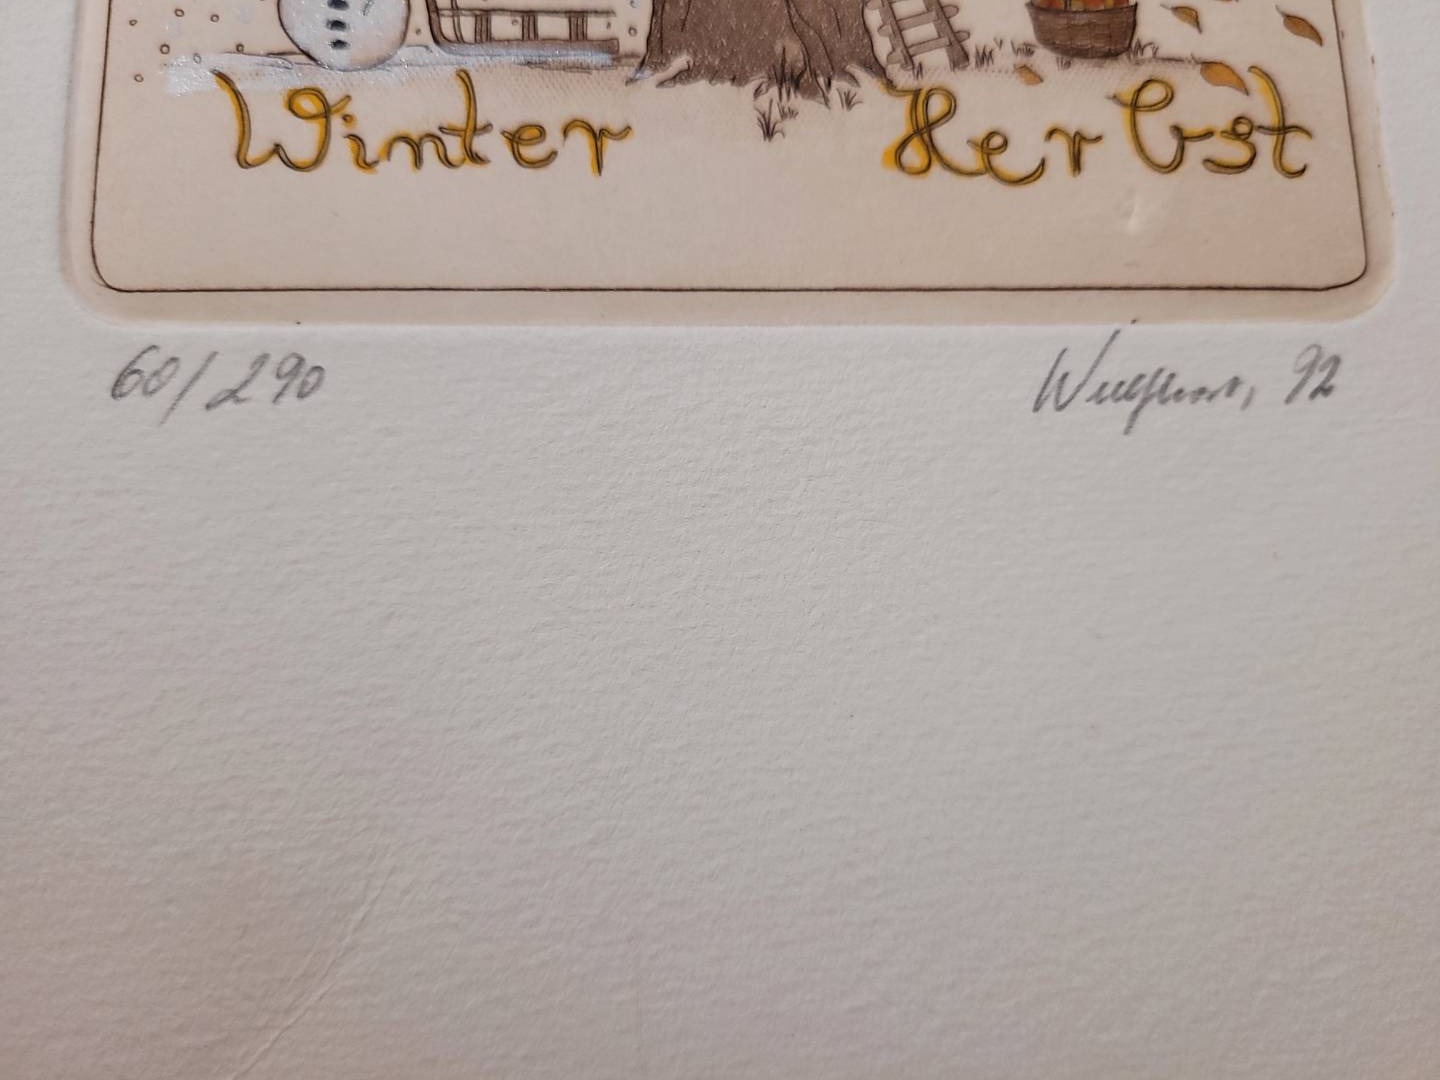 Winter Herbst
60/290 92